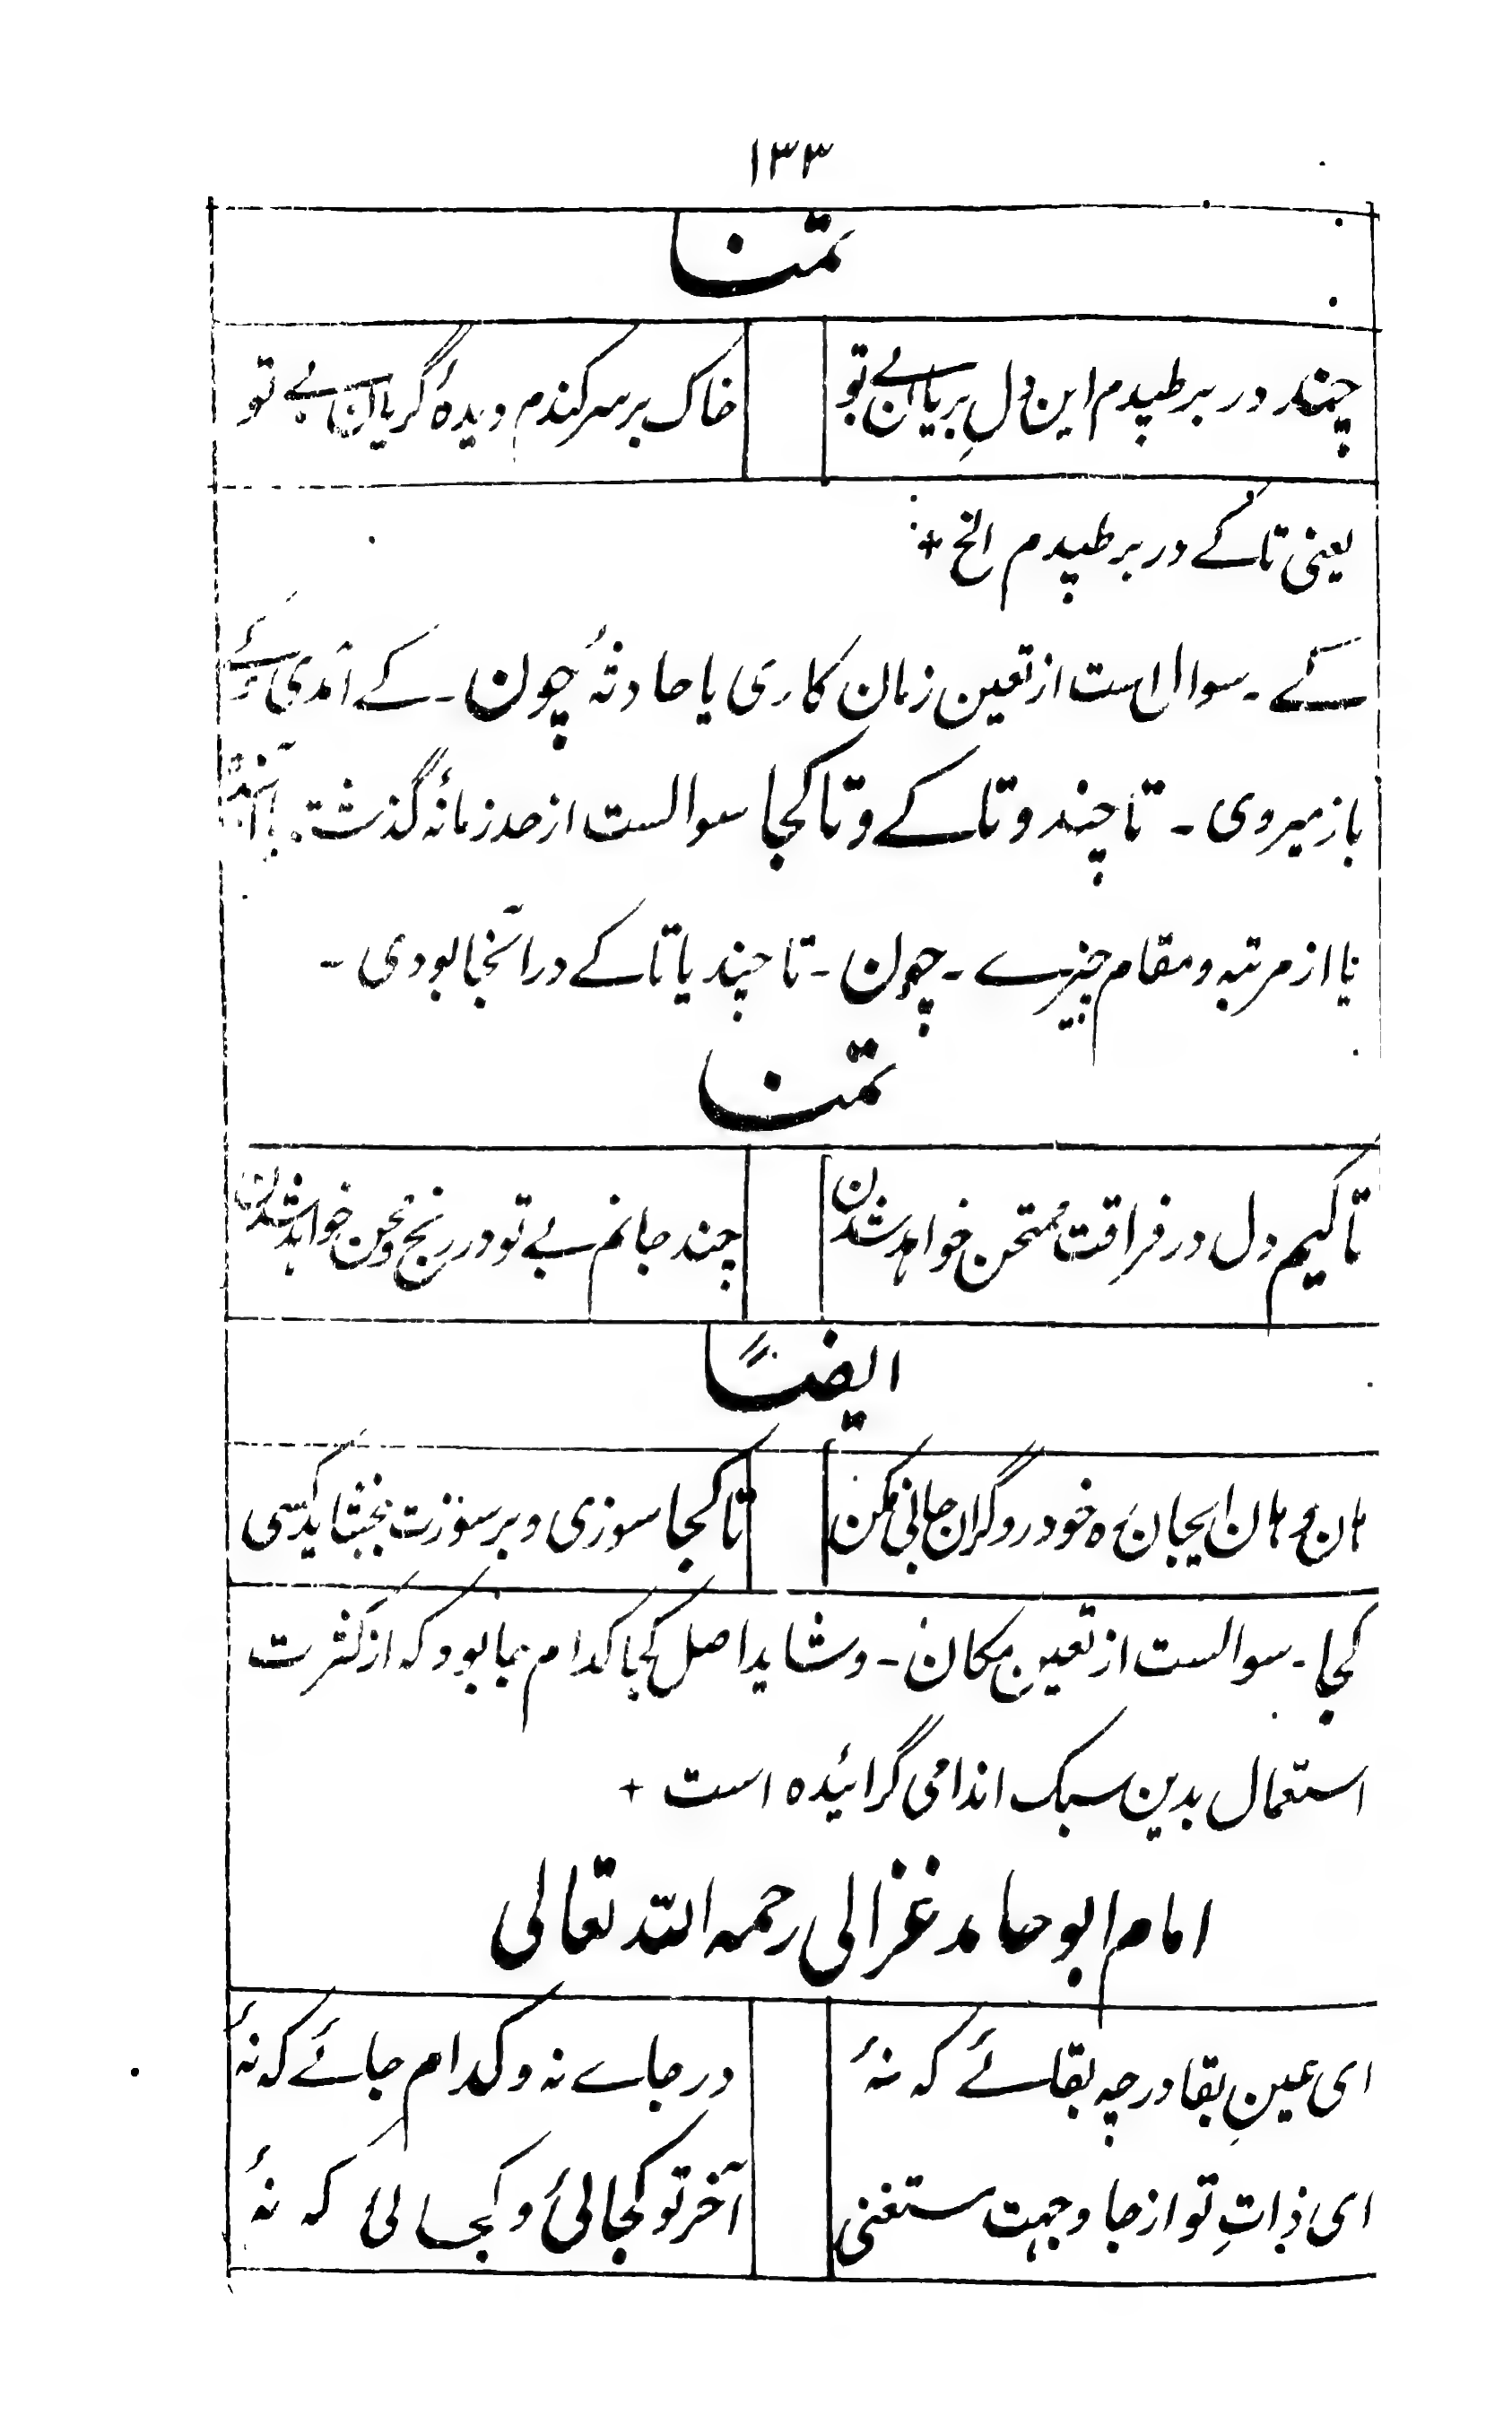 ۱۳۳
تمنا
چند در بر طپدم این دلِ بریان بے تو
خاک بر سر کندم دیدهٔ گریان بے تو
یعنی تاکے در بر طپدم الخ +
کے ۔ سوال است از تعین زمان کاری یا حادثهٔ چون ۔ کے آمدی
باز میروی ۔ تا چند و تاکے و تا کجا سوالست از حد زمانهٔ گذشته
یا از مرتبه و مقام چیزے ۔ چون ۔ تا چند یا تاکے در آنجا بودی ۔
تمنا
تا کیم دل در فراقت ممتحن خواهد شدن
چند جانم بے تو در رنج و محن خواهد شدن
ایضاً
هان و هان ایجان ره خود رو گران جانی مکن
تا کجا سوزی و بر سوزت نبخشاید کسی
کجا ۔ سوالست از تعینِ مکان ۔ و شاید اصل کجا کدام جا بود که از کثرت
استعمال بدین سبک اندامی گرائیده است +
امام ابو حامد غزالی رحمه الله تعالی
ای عینِ بقا در چه بقائے که نهٔ
در جاے نه و کدام جائے که نهٔ
ای ذاتِ تو از جا و جهت مستغنی
آخر تو کجائی و کجائی که نهٔ